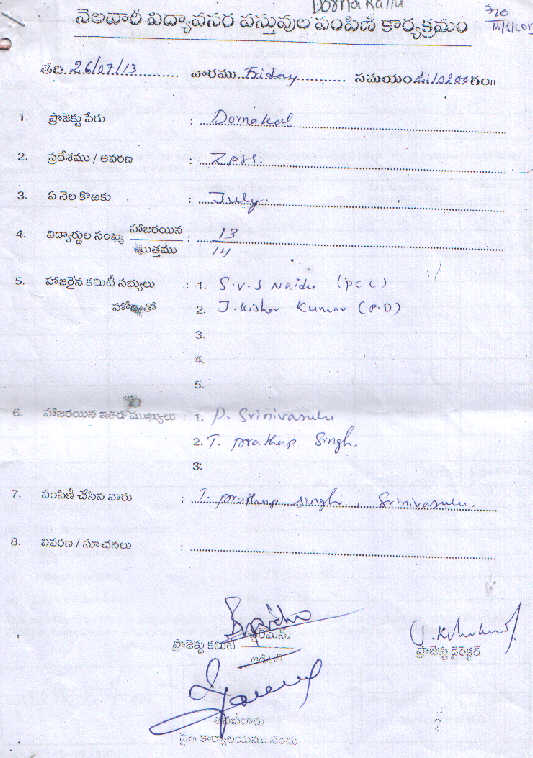 Dornakallu
నెలవారీ విద్యావసర వస్తువుల పంపిణీ కార్యక్రమం
తేది. 26/07/13 వారము Friday సమయం
1. ప్రాజెక్టు పేరు : Dornakal
2. ప్రదేశము / ఆవరణ : ZPHS
3. ఏ నెల కొఱకు : July
4. విద్యార్థుల సంఖ్య హాజరయిన : 13
మొత్తము 14
5. హాజరైన కమిటీ సభ్యులు : 1. S.V.S Naidu (PCC)
హోదాతో 2. J. Kishor Kumar (P.D)
3.
4.
5.
6. హాజరయిన ఇతర ముఖ్యులు : 1. P. Srinivasulu
2. T. Prathap Singh.
3.
7. పంపిణీ చేసిన వారు : T. Prathap Singh, Srinivasulu
8. వివరణ / సూచనలు :
ప్రాజెక్టు కమిటీ ఛైర్మన్
ప్రాజెక్టు డైరెక్టర్